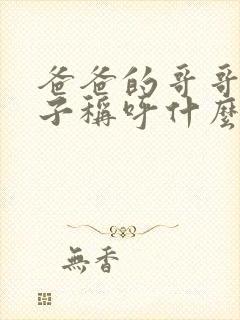 爸爸的哥哥
子稱呼什麼
無香